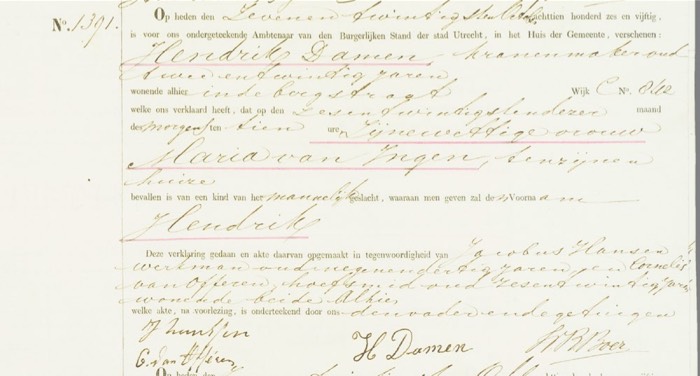 No. 1391. Op heden den Zevenen twintigsten achttien honderd zes en vijftig,
is voor ons ondergeteekende Ambtenaar van den Burgerlijken Stand der stad Utrecht, in het Huis der Gemeente, verschenen:
Hendrik Damen, kranenmaker oud
twee entwintig jaren
wonende alhier inde bergstragt Wijk C No. 842
welke ons verklaard heeft, dat op den Zesentwintigstendezer maand
des morgens ten tien ure, Zijnewettige vrouw
Maria van Ingen, tenzijnen
huize
bevallen is van een kind van het mannelijk geslacht, waaraan men geven zal den Voornaam
Hendrik
Deze verklaring gedaan en akte daarvan opgemaakt in tegenwoordigheid van Jacobus Hansen
werkman oud negenendertig jaren, en Cornelis
van Offeren, hoefsmid oud zesentwintig jaren
wonende beide Alhier
welke akte, na voorlezing, is onderteekend door ons den vader en de getuigen
J Hansen
C. van Offeren H Damen
Op heden den